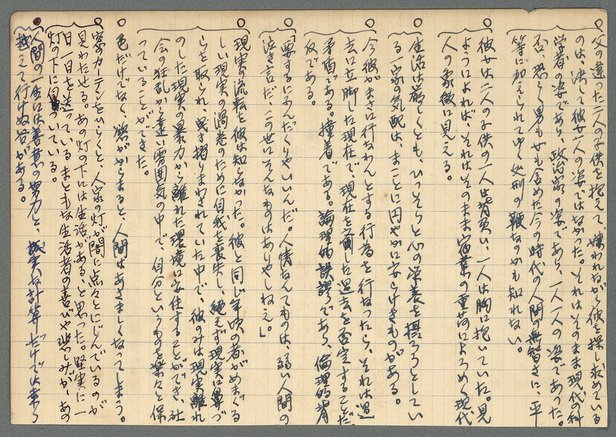 ○父の違った二人の子供を抱えて、嫌われながら彼を探し求めている
のは、決して彼女一人の姿ではなかった。それはそのまま現代の科
学者の姿であり、政治家の姿であり、一人一人の姿であった。
否、恐らく男も女も含めた今の時代の人間の無智さに、平
等に加えられて来た処刑の鞭なのかも知れない
○彼女は二人の子供の一人は背負い、一人は胸に抱いていた。見
ようによれば、それはそのまま宿業の重荷によろめく現代
人の象徴に見える。
○生活は貧しくとも、ひっそりと心の栄養を摂ろうとしてい
る一家の気配は、まことに円やかに安らけきものがある。
○今彼がまさに行なわんとする行為を行なったら、それは過
去に立脚した現在で、現在に立脚した過去を否定することだ
である。撞着である。論理的誤謬であり、倫理的背
反である。
○「要するにあんだくりゃいいんだ。人情なんてものは、弱い人間の
泣き言だ、この世にそんなものはありゃしねえ。」
○現実の流転を彼は知らなかった。彼と同じ年頃の者がめまぐる
しい現実の渦巻のために自我を喪失し、絶えず現実に鼻づ
らを取られて、曳き摺りまわされていた中で、彼のみは現実離れ
のした現実の暴力から離れた環境に安住することができ、社
会の狂乱から遠い雰囲気の中で、自分というものを楽々と保
っていることができた。
○色だけでなく欲がからまると、人間はあさましくなってしまう。
○窓のカーテンをひらくと、人家の灯が闇に点々とにじんでいるのが
見わたせる。あの灯の下には生活がある、と思った。堅実に一
日一日を送っているまともな生活者の喜びや悲しみが、あの
灯の下に息づいている。
●人間の一生には善意の努力と、誠実な計算だけでは乗り
越えて行けぬ谷がある。